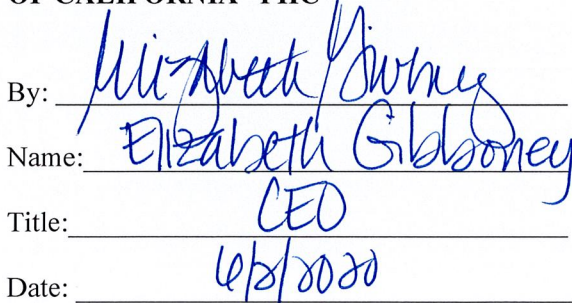 OF CALIFORNIA PHC
By: Elizabeth Gibboney
Name: Elizabeth Gibboney
Title: CEO
Date: 6/2/2020